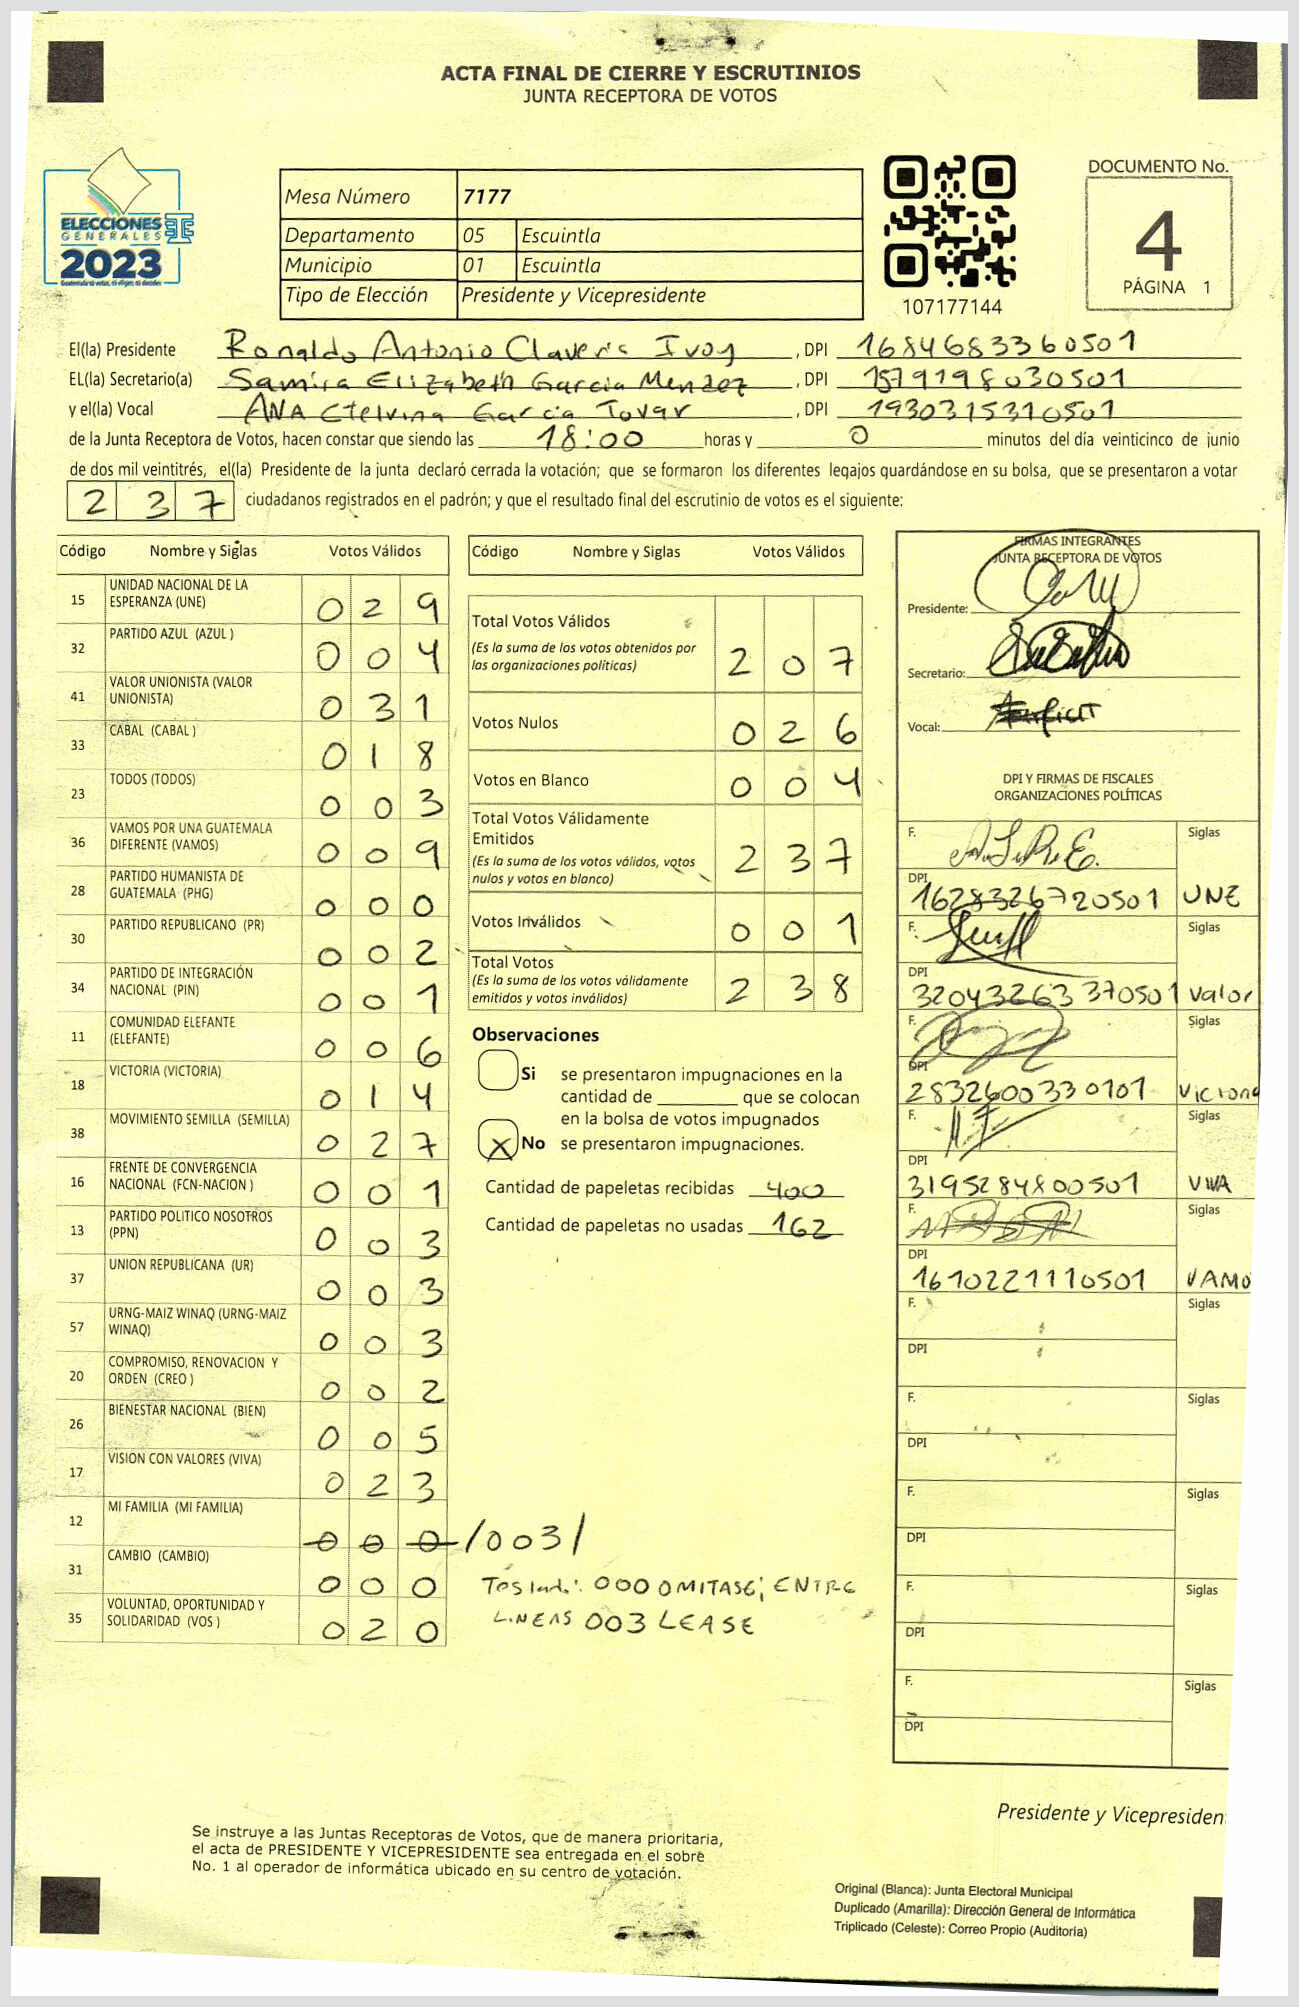 ACTA FINAL DE CIERRE Y ESCRUTINIOS
JUNTA RECEPTORA DE VOTOS
ELECCIONES
GENERALES
2023
Mesa Número 7177
Departamento 05 Escuintla
Municipio 01 Escuintla
Tipo de Elección Presidente y Vicepresidente
107177144
DOCUMENTO No.
4
PÁGINA 1
El(la) Presidente Ronaldo Antonio Claveria Ivoy, DPI 1684683360501
EL(la) Secretario(a) Samira Elizabeth Garcia Mendez, DPI 1579198030501
y el(la) Vocal ANA Etelvina Garcia Tovar, DPI 1930315310501
de la Junta Receptora de Votos, hacen constar que siendo las 18:00 horas y 0 minutos del día veinticinco de junio
de dos mil veintitrés, el(la) Presidente de la junta declaró cerrada la votación; que se formaron los diferentes legajos guardándose en su bolsa, que se presentaron a votar
237 ciudadanos registrados en el padrón; y que el resultado final del escrutinio de votos es el siguiente:
Código Nombre y Siglas Votos Válidos
15 UNIDAD NACIONAL DE LA ESPERANZA (UNE) 029
32 PARTIDO AZUL (AZUL ) 004
41 VALOR UNIONISTA (VALOR UNIONISTA) 031
33 CABAL (CABAL ) 018
23 TODOS (TODOS) 003
36 VAMOS POR UNA GUATEMALA DIFERENTE (VAMOS) 009
28 PARTIDO HUMANISTA DE GUATEMALA (PHG) 000
30 PARTIDO REPUBLICANO (PR) 002
34 PARTIDO DE INTEGRACIÓN NACIONAL (PIN) 001
11 COMUNIDAD ELEFANTE (ELEFANTE) 006
18 VICTORIA (VICTORIA) 014
38 MOVIMIENTO SEMILLA (SEMILLA) 027
16 FRENTE DE CONVERGENCIA NACIONAL (FCN-NACION ) 001
13 PARTIDO POLITICO NOSOTROS (PPN) 003
37 UNION REPUBLICANA (UR) 003
57 URNG-MAIZ WINAQ (URNG-MAIZ WINAQ) 003
20 COMPROMISO, RENOVACION Y ORDEN (CREO ) 002
26 BIENESTAR NACIONAL (BIEN) 005
17 VISION CON VALORES (VIVA) 023
12 MI FAMILIA (MI FAMILIA) 000 /003/
31 CAMBIO (CAMBIO) 000
35 VOLUNTAD, OPORTUNIDAD Y SOLIDARIDAD (VOS ) 020
Código Nombre y Siglas Votos Válidos
Total Votos Válidos 207
(Es la suma de los votos obtenidos por
las organizaciones políticas)
Votos Nulos 026
Votos en Blanco 004
Total Votos Válidamente
Emitidos 237
(Es la suma de los votos válidos, votos
nulos y votos en blanco)
Votos Inválidos 001
Total Votos 238
(Es la suma de los votos válidamente
emitidos y votos inválidos)
Observaciones
Si se presentaron impugnaciones en la
cantidad de ________ que se colocan
en la bolsa de votos impugnados
X No se presentaron impugnaciones.
Cantidad de papeletas recibidas 400
Cantidad de papeletas no usadas 162
000 OMITASE; ENTRE
LINEAS 003 LEASE
FIRMAS INTEGRANTES
JUNTA RECEPTORA DE VOTOS
Presidente:
Secretario:
Vocal:
DPI Y FIRMAS DE FISCALES
ORGANIZACIONES POLÍTICAS
F. Siglas
DPI
1628326720501 UNE
F. Siglas
DPI
32043263370501 Valor
F. Siglas
DPI
2832600330101 Victoria
F. Siglas
DPI
3195284800501 VIVA
F. Siglas
DPI
1610221110501 VAMO
F. Siglas
DPI
F. Siglas
DPI
F. Siglas
DPI
F. Siglas
DPI
F. Siglas
DPI
Presidente y Vicepresiden
Se instruye a las Juntas Receptoras de Votos, que de manera prioritaria,
el acta de PRESIDENTE Y VICEPRESIDENTE sea entregada en el sobre
No. 1 al operador de informática ubicado en su centro de votación.
Original (Blanca): Junta Electoral Municipal
Duplicado (Amarilla): Dirección General de Informática
Triplicado (Celeste): Correo Propio (Auditoría)